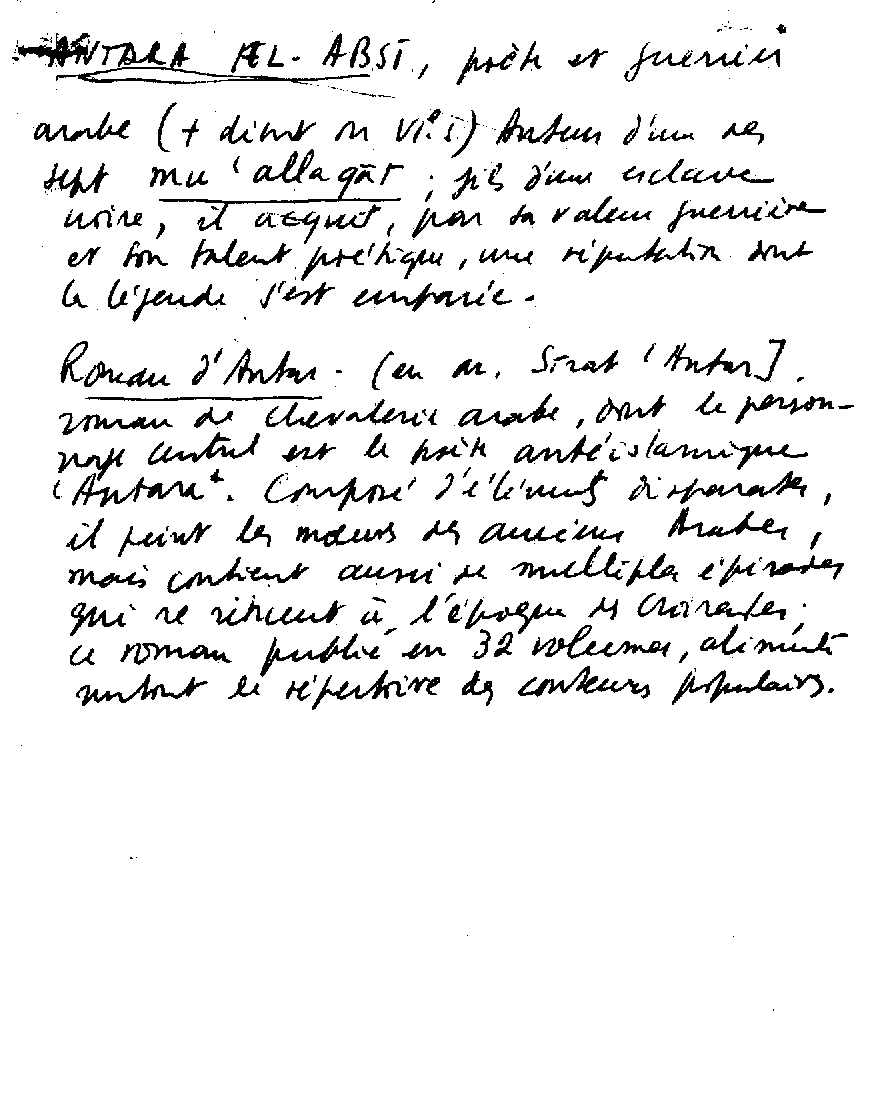 ANTARA EL-ABSI, poète et guerrier
arabe (+ début du VIe s) Auteur d'une des
sept mu'allaqāt ; fils d'une esclave
noire, il acquit, par sa valeur guerrière
et son talent poétique, une réputation dont
la légende s'est emparée.
Roman d'Antar - (en ar. Sirat 'Antar].
roman de chevalerie arabe, dont le person-
nage central est le poète antéislamique
'Antara*. Composé d'éléments disparates,
il peint les mœurs des anciens Arabes,
mais contient aussi de multiples épisodes
qui se situent à l'époque des Croisades ;
ce roman publié en 32 volumes, alimente
surtout le répertoire des conteurs populaires.